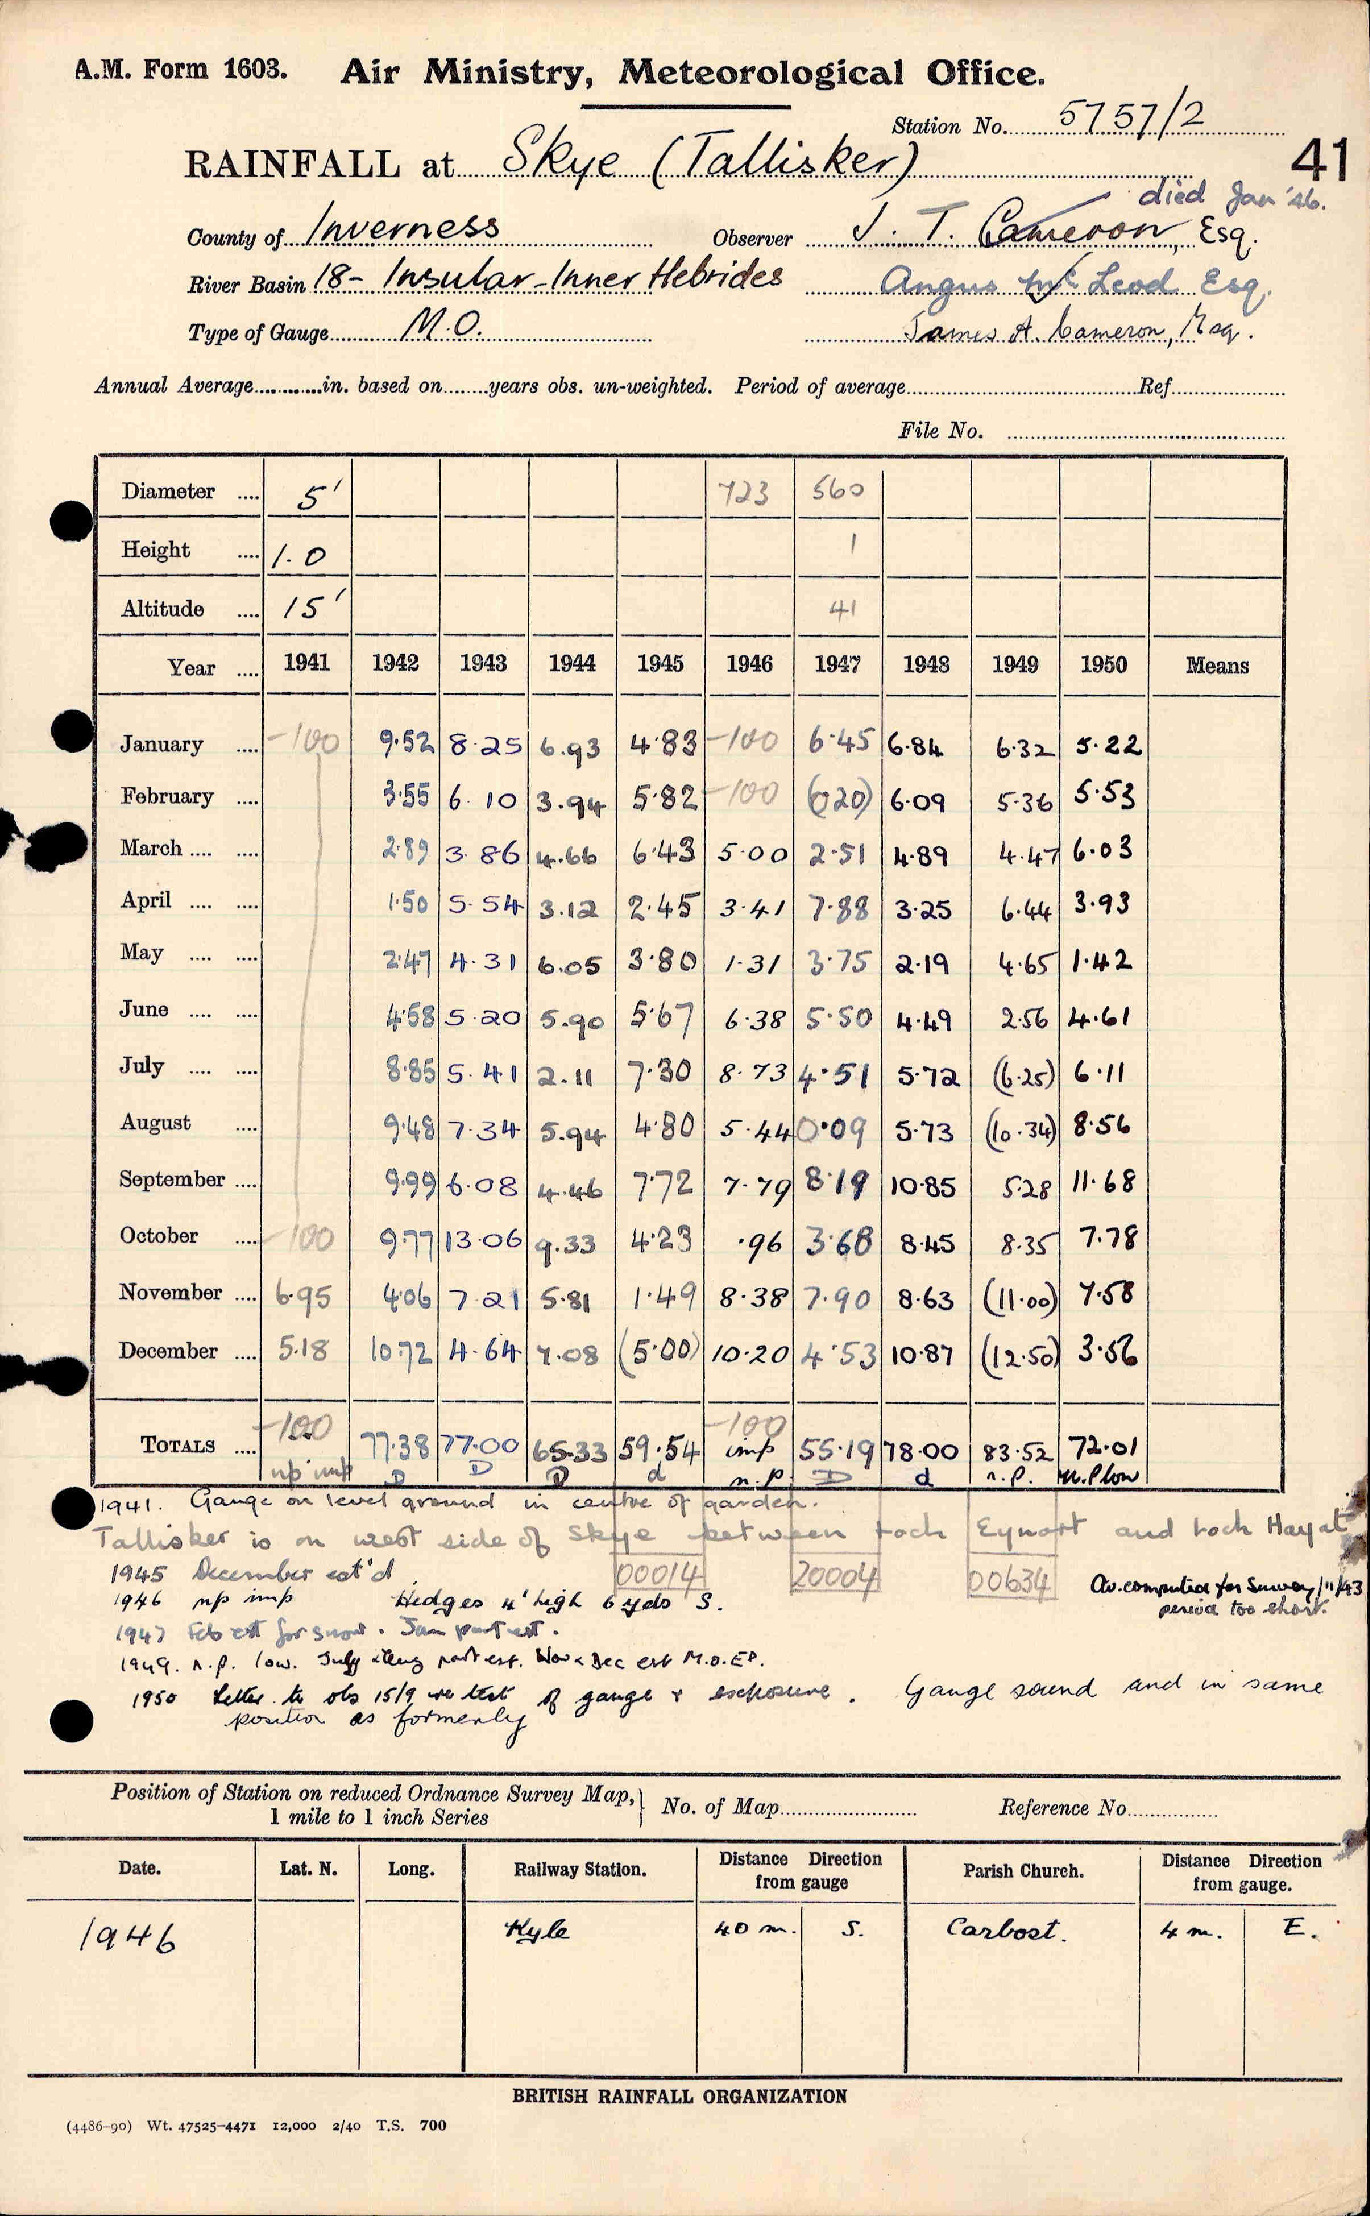 A.M. Form 1603. Air Ministry, Meteorological Office.
Station No. 5757/2
41
RAINFALL at Skye (Tallisker)
died Jan '46.
County of Inverness Observer J. T. Cameron, Esq.
River Basin 18 - Insular - Inner Hebrides Angus McLeod Esq.
Type of Gauge M.O. James A. Cameron, Esq.
Annual Average in. based on years obs. un-weighted. Period of average Ref.
File No.
Diameter 5' 723 560
Height 1.0 1
Altitude 15' 41
Year 1941 1942 1943 1944 1945 1946 1947 1948 1949 1950 Means
January -100 9.52 8.25 6.93 4.83 -100 6.45 6.84 6.32 5.22
February 3.55 6.10 3.94 5.82 -100 (020) 6.09 5.36 5.53
March 2.89 3.86 4.66 6.43 5.00 2.51 4.89 4.47 6.03
April 1.50 5.54 3.12 2.45 3.41 7.88 3.25 6.44 3.93
May 2.47 4.31 6.05 3.80 1.31 3.75 2.19 4.65 1.42
June 4.58 5.20 5.90 5.67 6.38 5.50 4.49 2.56 4.61
July 8.85 5.41 2.11 7.30 8.73 4.51 5.72 (6.25) 6.11
August 9.48 7.34 5.94 4.80 5.44 0.09 5.73 (10.34) 8.56
September 9.99 6.08 4.46 7.72 7.79 8.19 10.85 5.28 11.68
October -100 9.77 13.06 9.33 4.23 .96 3.68 8.45 8.35 7.78
November 6.95 4.06 7.21 5.81 1.49 8.38 7.90 8.63 (11.00) 7.58
December 5.18 10.72 4.64 7.08 (5.00) 10.20 4.53 10.87 (12.50) 3.56
-100 -100
TOTALS 77.38 77.00 65.33 59.54 imp 55.19 78.00 83.52 72.01
np imp D D D d n.p. D d n.p. n.p low
1941. Gauge on level ground in centre of garden.
Tallisker is on west side of Skye between Loch Eynort and Loch
1945 December est'd 00014 20004 00634 Av. computed for Survey /11/43
1946 np imp Hedges 4' high 6 yds S. period too short.
1947 Feb est for snow. Jan part est.
1949. n.p. low. July & Aug part est. Nov & Dec est M.O. ED.
1950 Letter to obs 15/9 re test of gauge & exposure. Gauge sound and in same
position as formerly
Position of Station on reduced Ordnance Survey Map, } No. of Map Reference No.
1 mile to 1 inch Series
Date. Lat. N. Long. Railway Station. Distance Direction from gauge Parish Church. Distance Direction from gauge.
1946 Kyle 40 m. S. Carbost. 4 m. E.
BRITISH RAINFALL ORGANIZATION
(4486-90) Wt. 47525-4471 12,000 2/40 T.S. 700